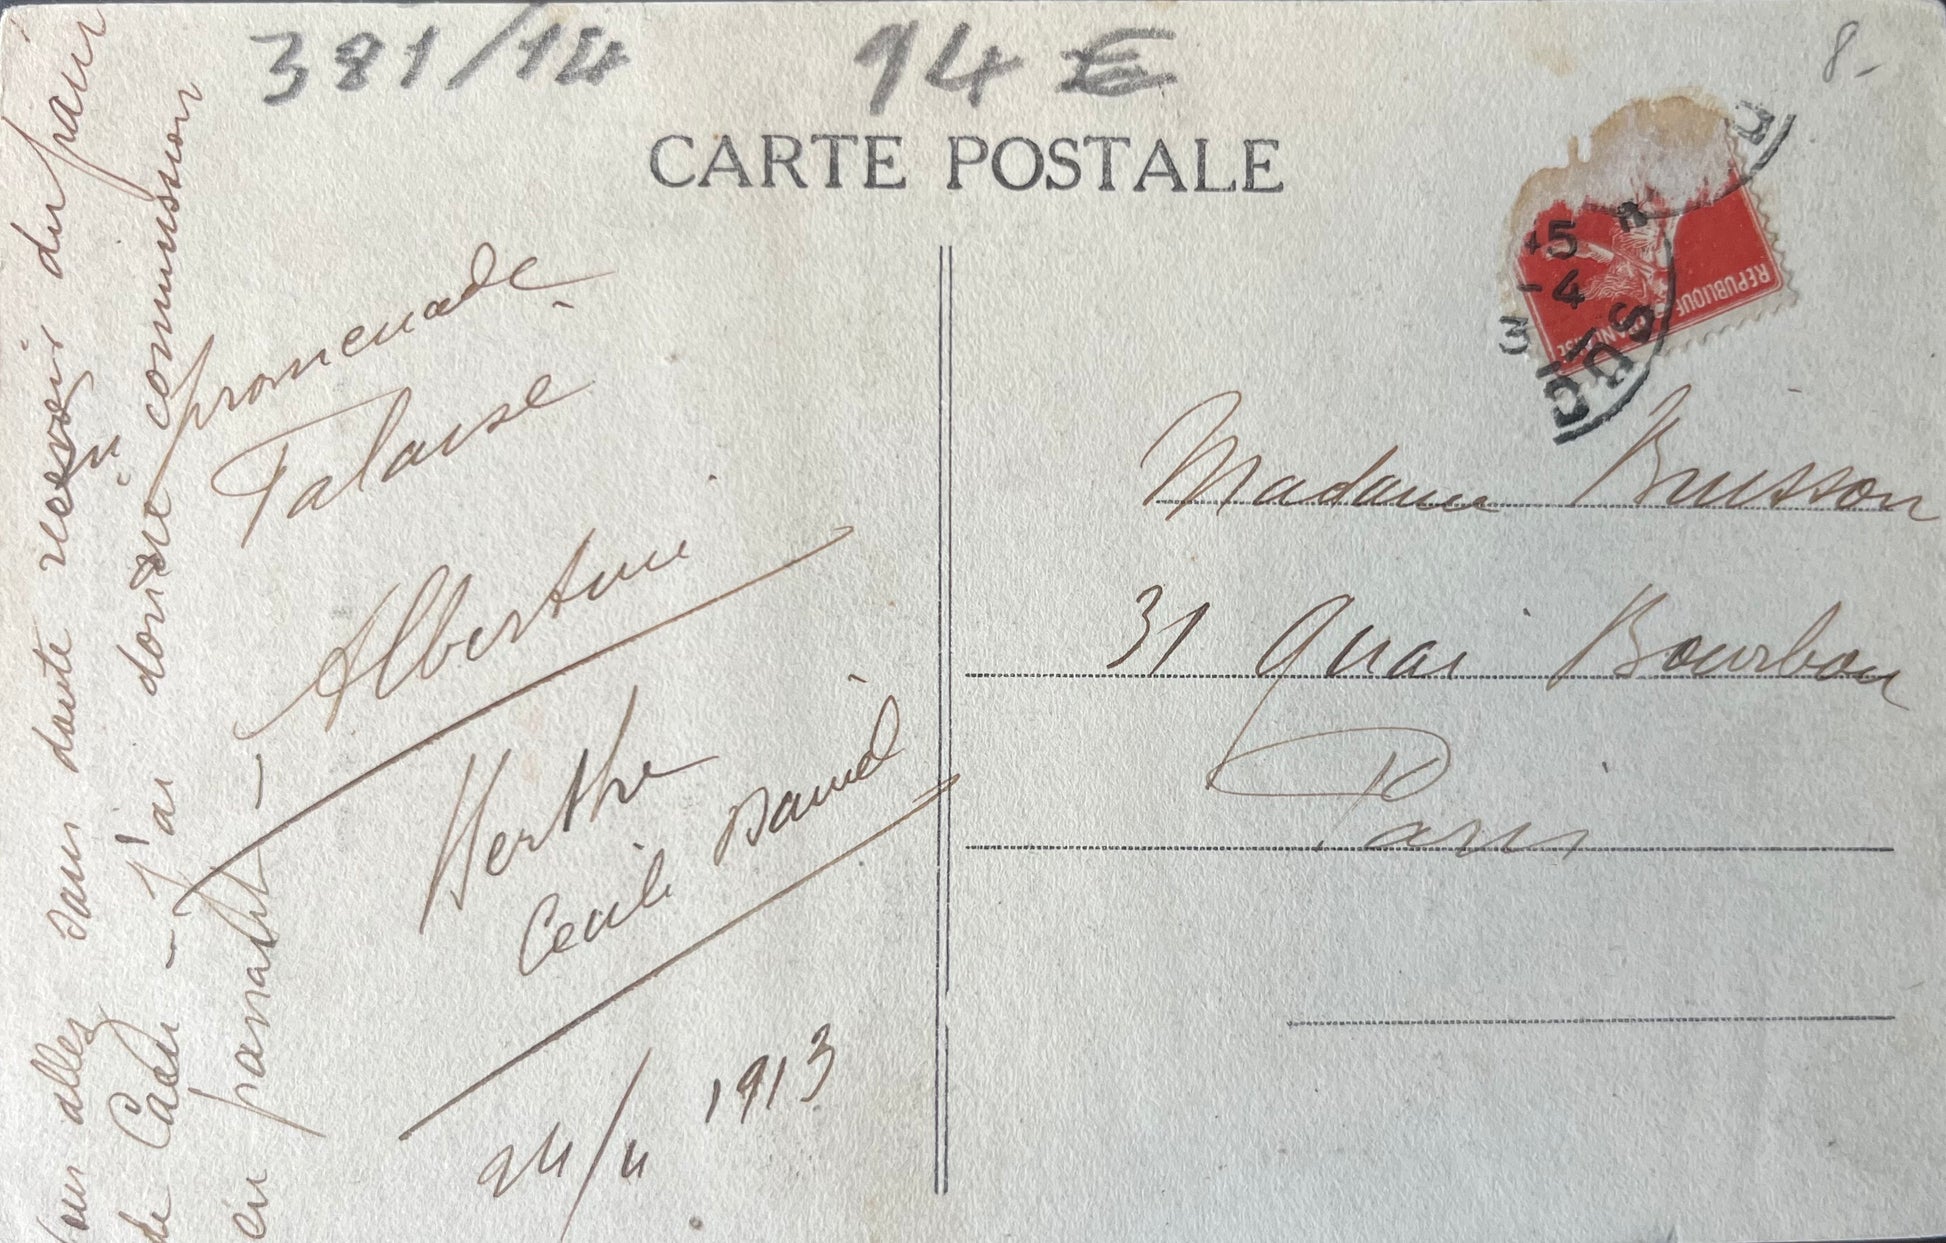 381/14
14 €
8-
CARTE POSTALE
promenade
Falaise
Albertine
Berthe
Cecile David
24/4 1913
Vous allez sans doute recevoir du pain
de Caen - J'ai donné commission
en partant -
Madame Buisson
31 Quai Bourbon
Paris
REPUBLIQUE FRANÇAISE
15
4